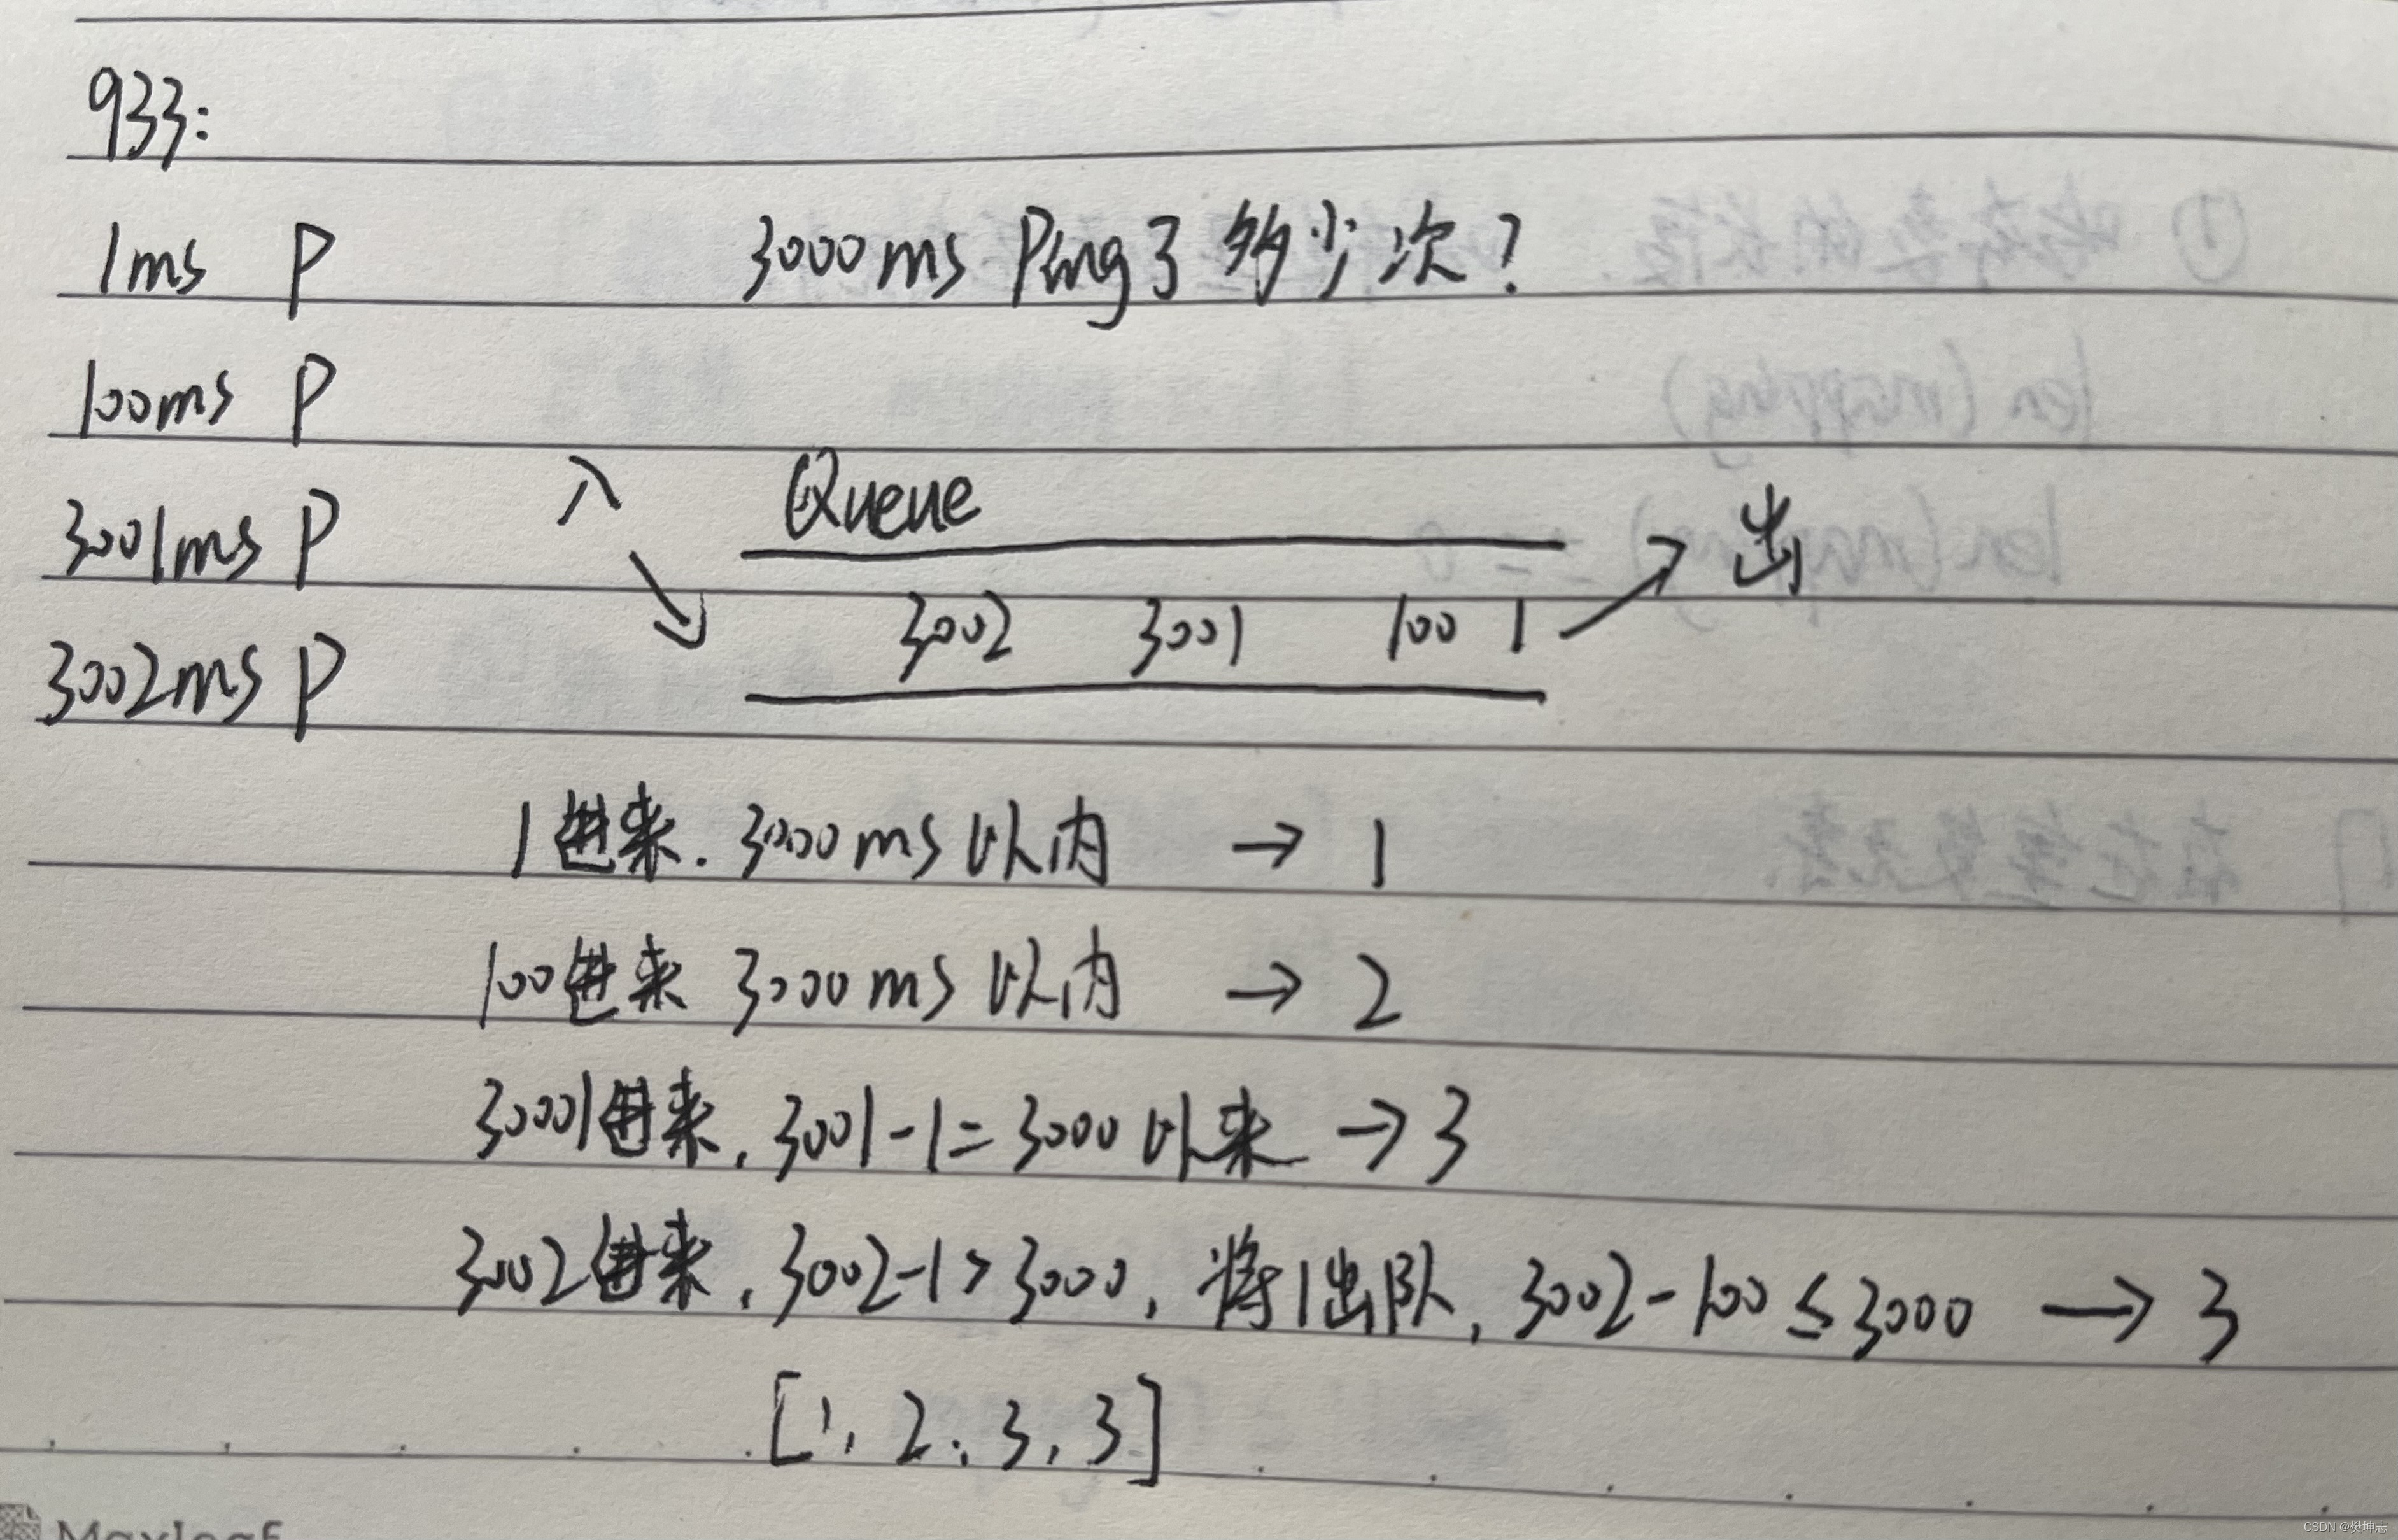 933:
1ms P 3000ms Ping了多少次?
100ms P
入 Queue
3001ms P 出
3002 3001 100 1
3002ms P
1进来. 3000ms以内 → 1
100进来 3000ms以内 → 2
30001进来, 3001-1=3000以来 → 3
3002进来, 3002-1>3000, 将1出队, 3002-100≤3000 → 3
[1, 2, 3, 3]
Maxleaf
CSDN @樊坤志